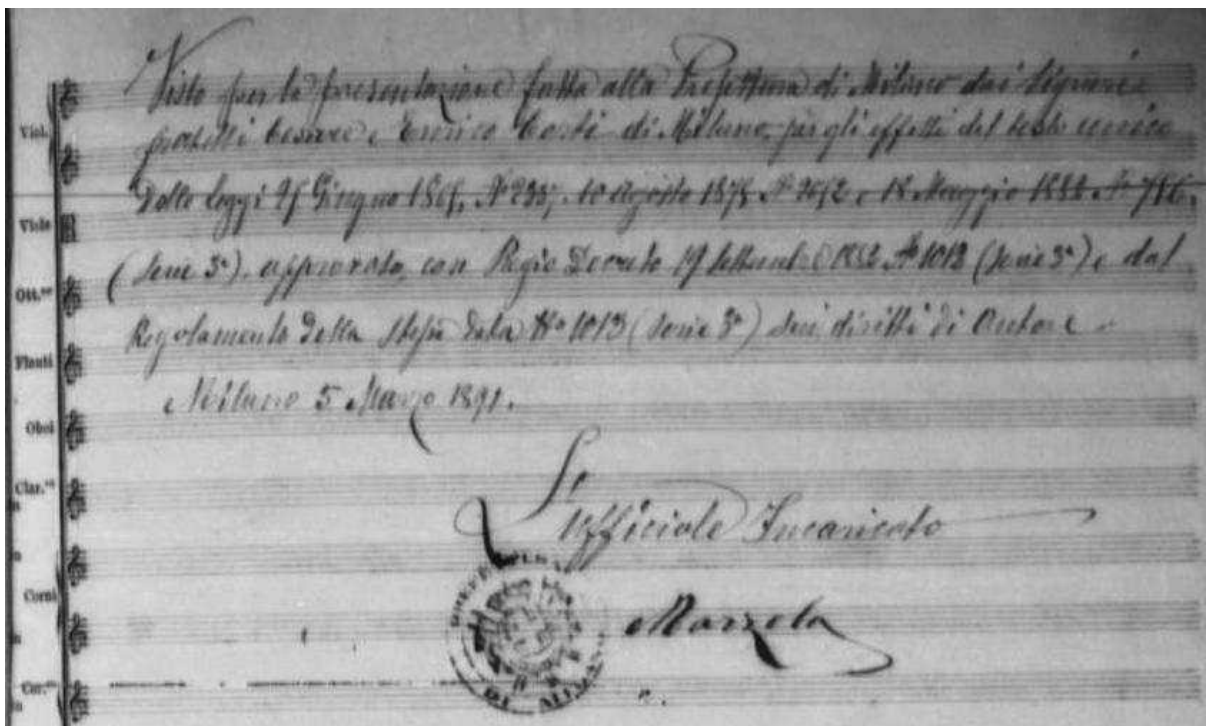 Visto per la presentazione fatta alla Prefettura di Milano dai Signori
fratelli Cesare e Enrico Corti di Milano, per gli effetti del testo unico
delle leggi 25 Giugno 1865, No 2337, 10 Agosto 1875 No 2652 e 18 Maggio 1882 No 756,
(Serie 3a), approvato, con Regio Decreto 19 Settembre 1882 No 1012 (Serie 3a) e dal
Regolamento della stessa data No 1013 (Serie 3a) sui diritti di Autore
Milano 5 Marzo 1891.
L'
Ufficiale Incaricato
Viol.
Viole
Ott.no
Flauti
Oboi
Clar.ti
Corni